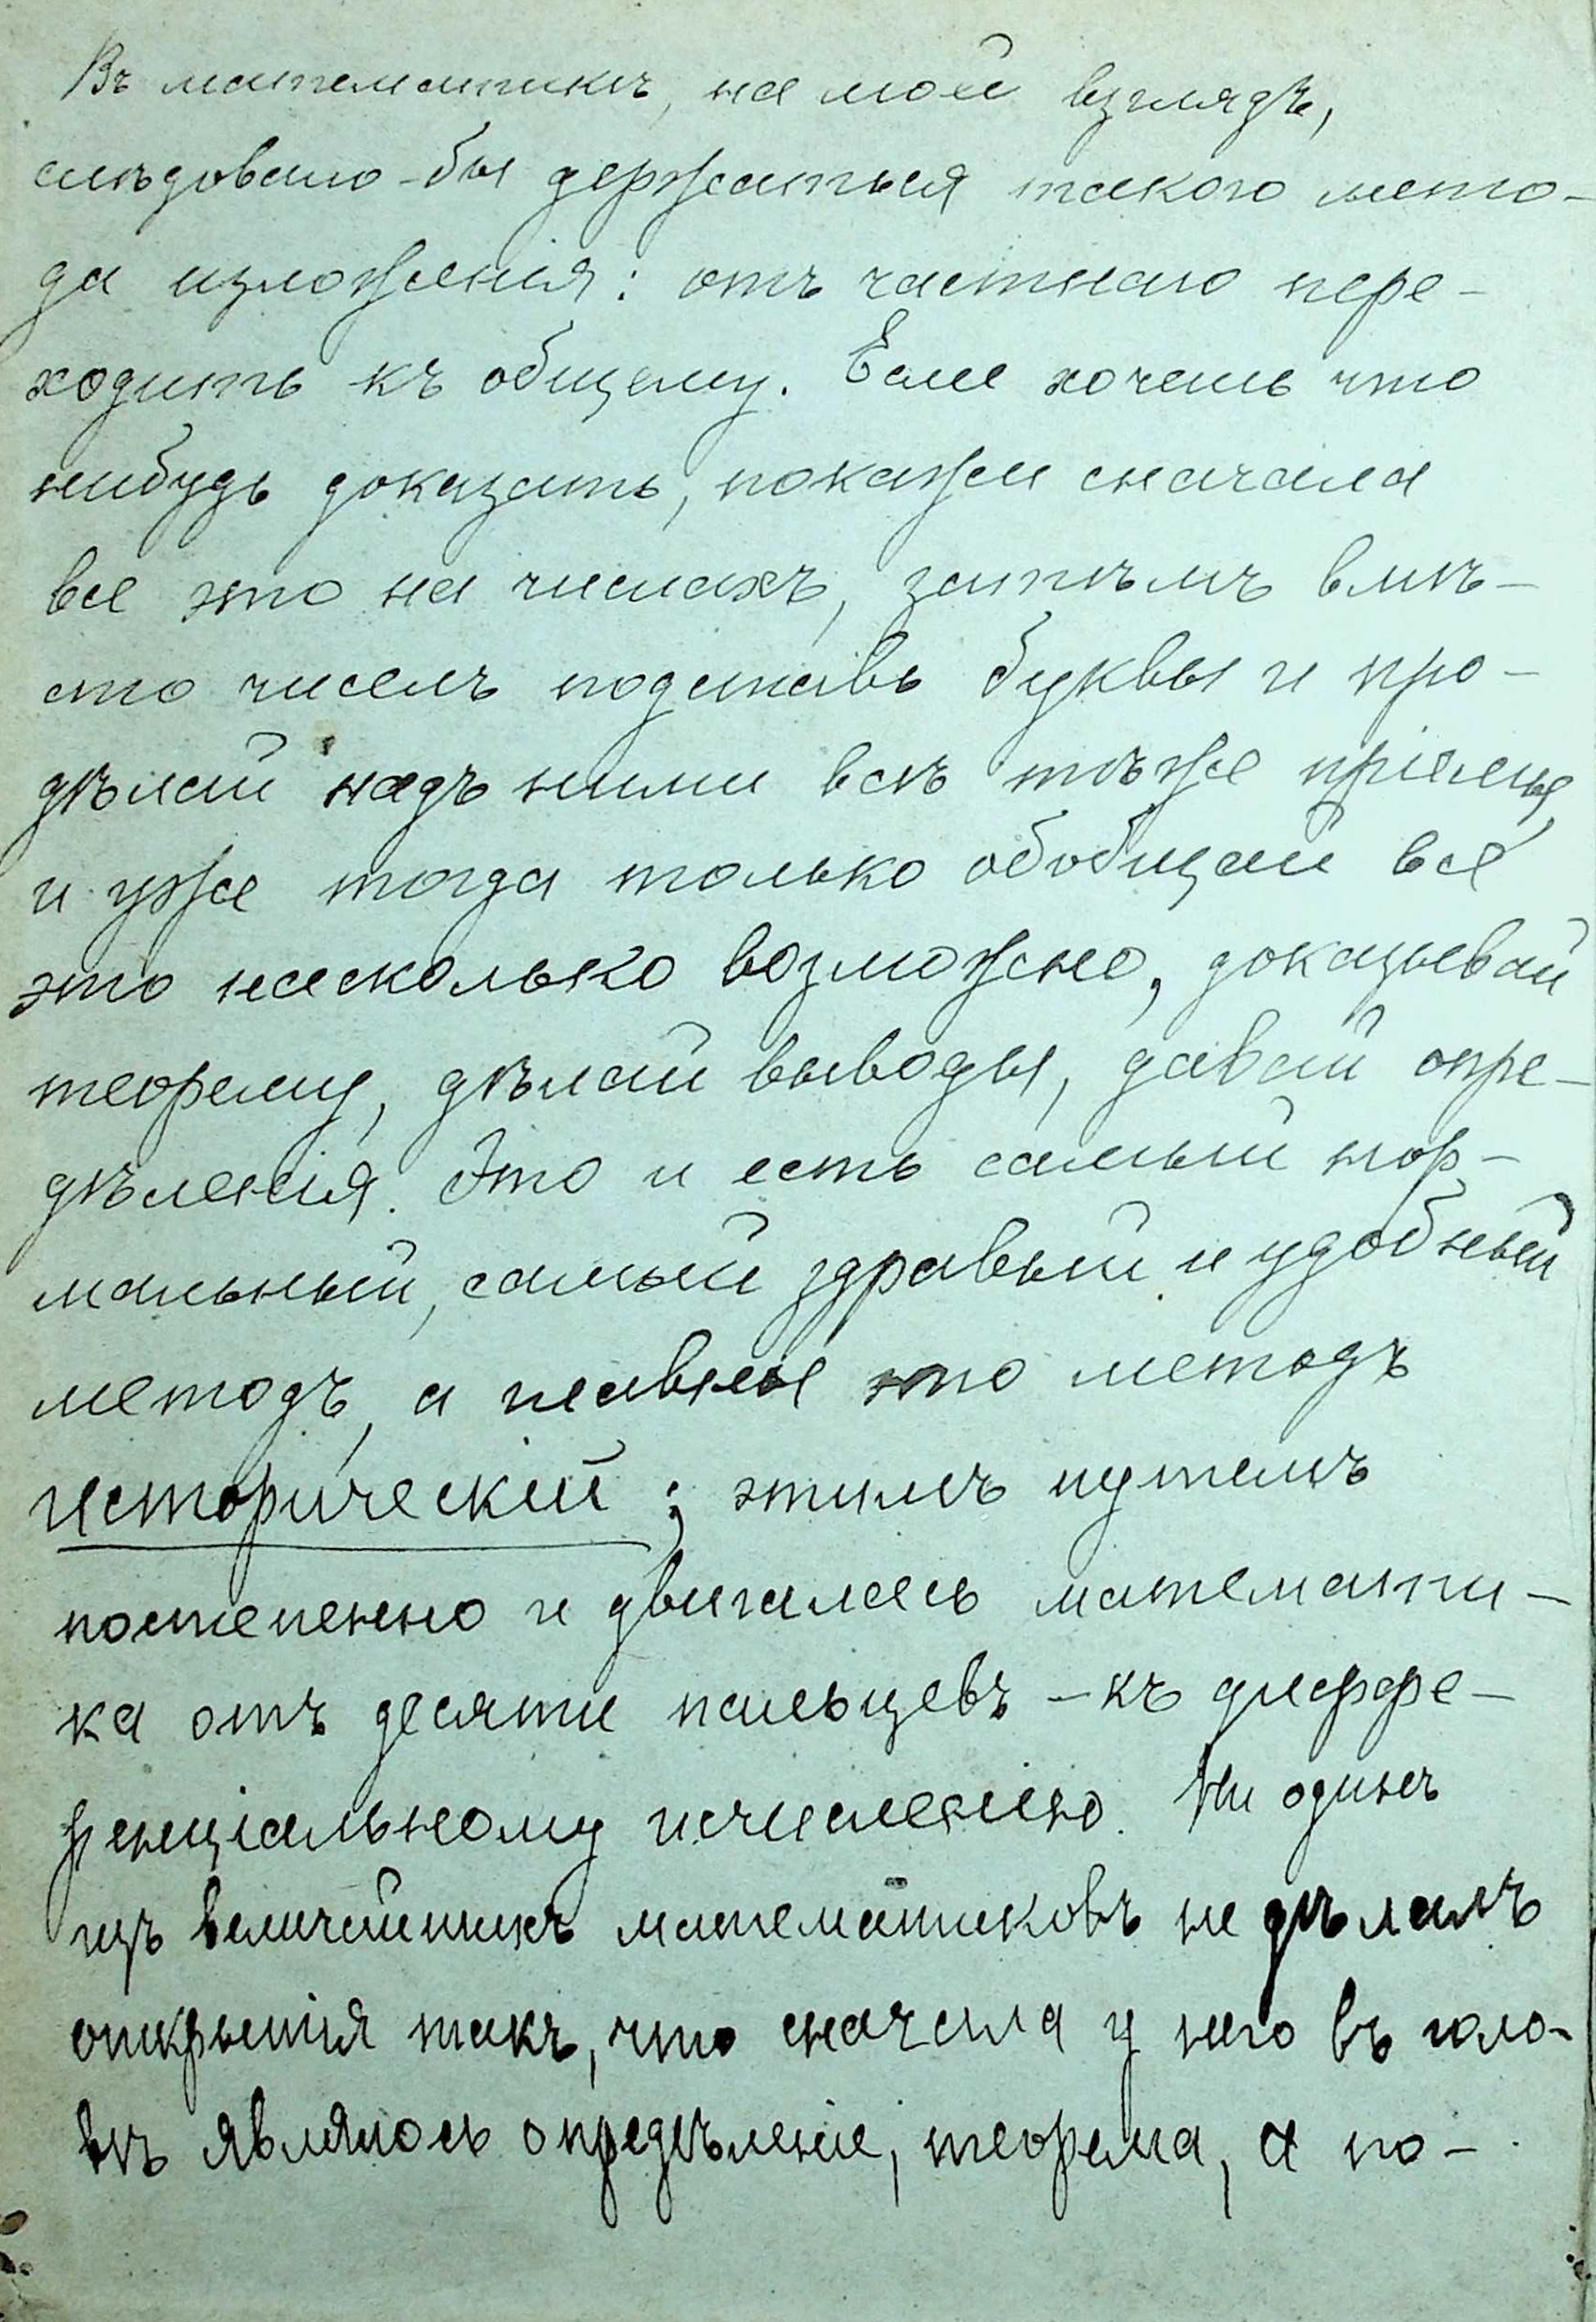 Въ математикѣ, на мой взглядъ,
слѣдовало-бы держаться такого мето-
да изложенія: отъ частнаго пере-
ходить къ общему. Если хочешь что
нибудь доказать, покажи сначала
все это на числахъ, затѣмъ вмѣ-
сто чиселъ подставь буквы и про-
дѣлай надъ ними всѣ тѣже пріемы,
и уже тогда только обобщай всё
это насколько возможно, доказывай
теорему, дѣлай выводы, давай опре-
дѣленія. Это и есть самый нор-
мальный, самый здравый и удобный
методъ, а главное это методъ
историческій; этимъ путемъ
постепенно и двигалась математи-
ка отъ десяти пальцевъ - къ диффе-
ренціальному исчисленію. Ни одинъ
изъ величайшихъ математиковъ не дѣлалъ
открытія такъ, что сначала у него въ голо-
вѣ являлось опредѣленіе, теорема, а по-